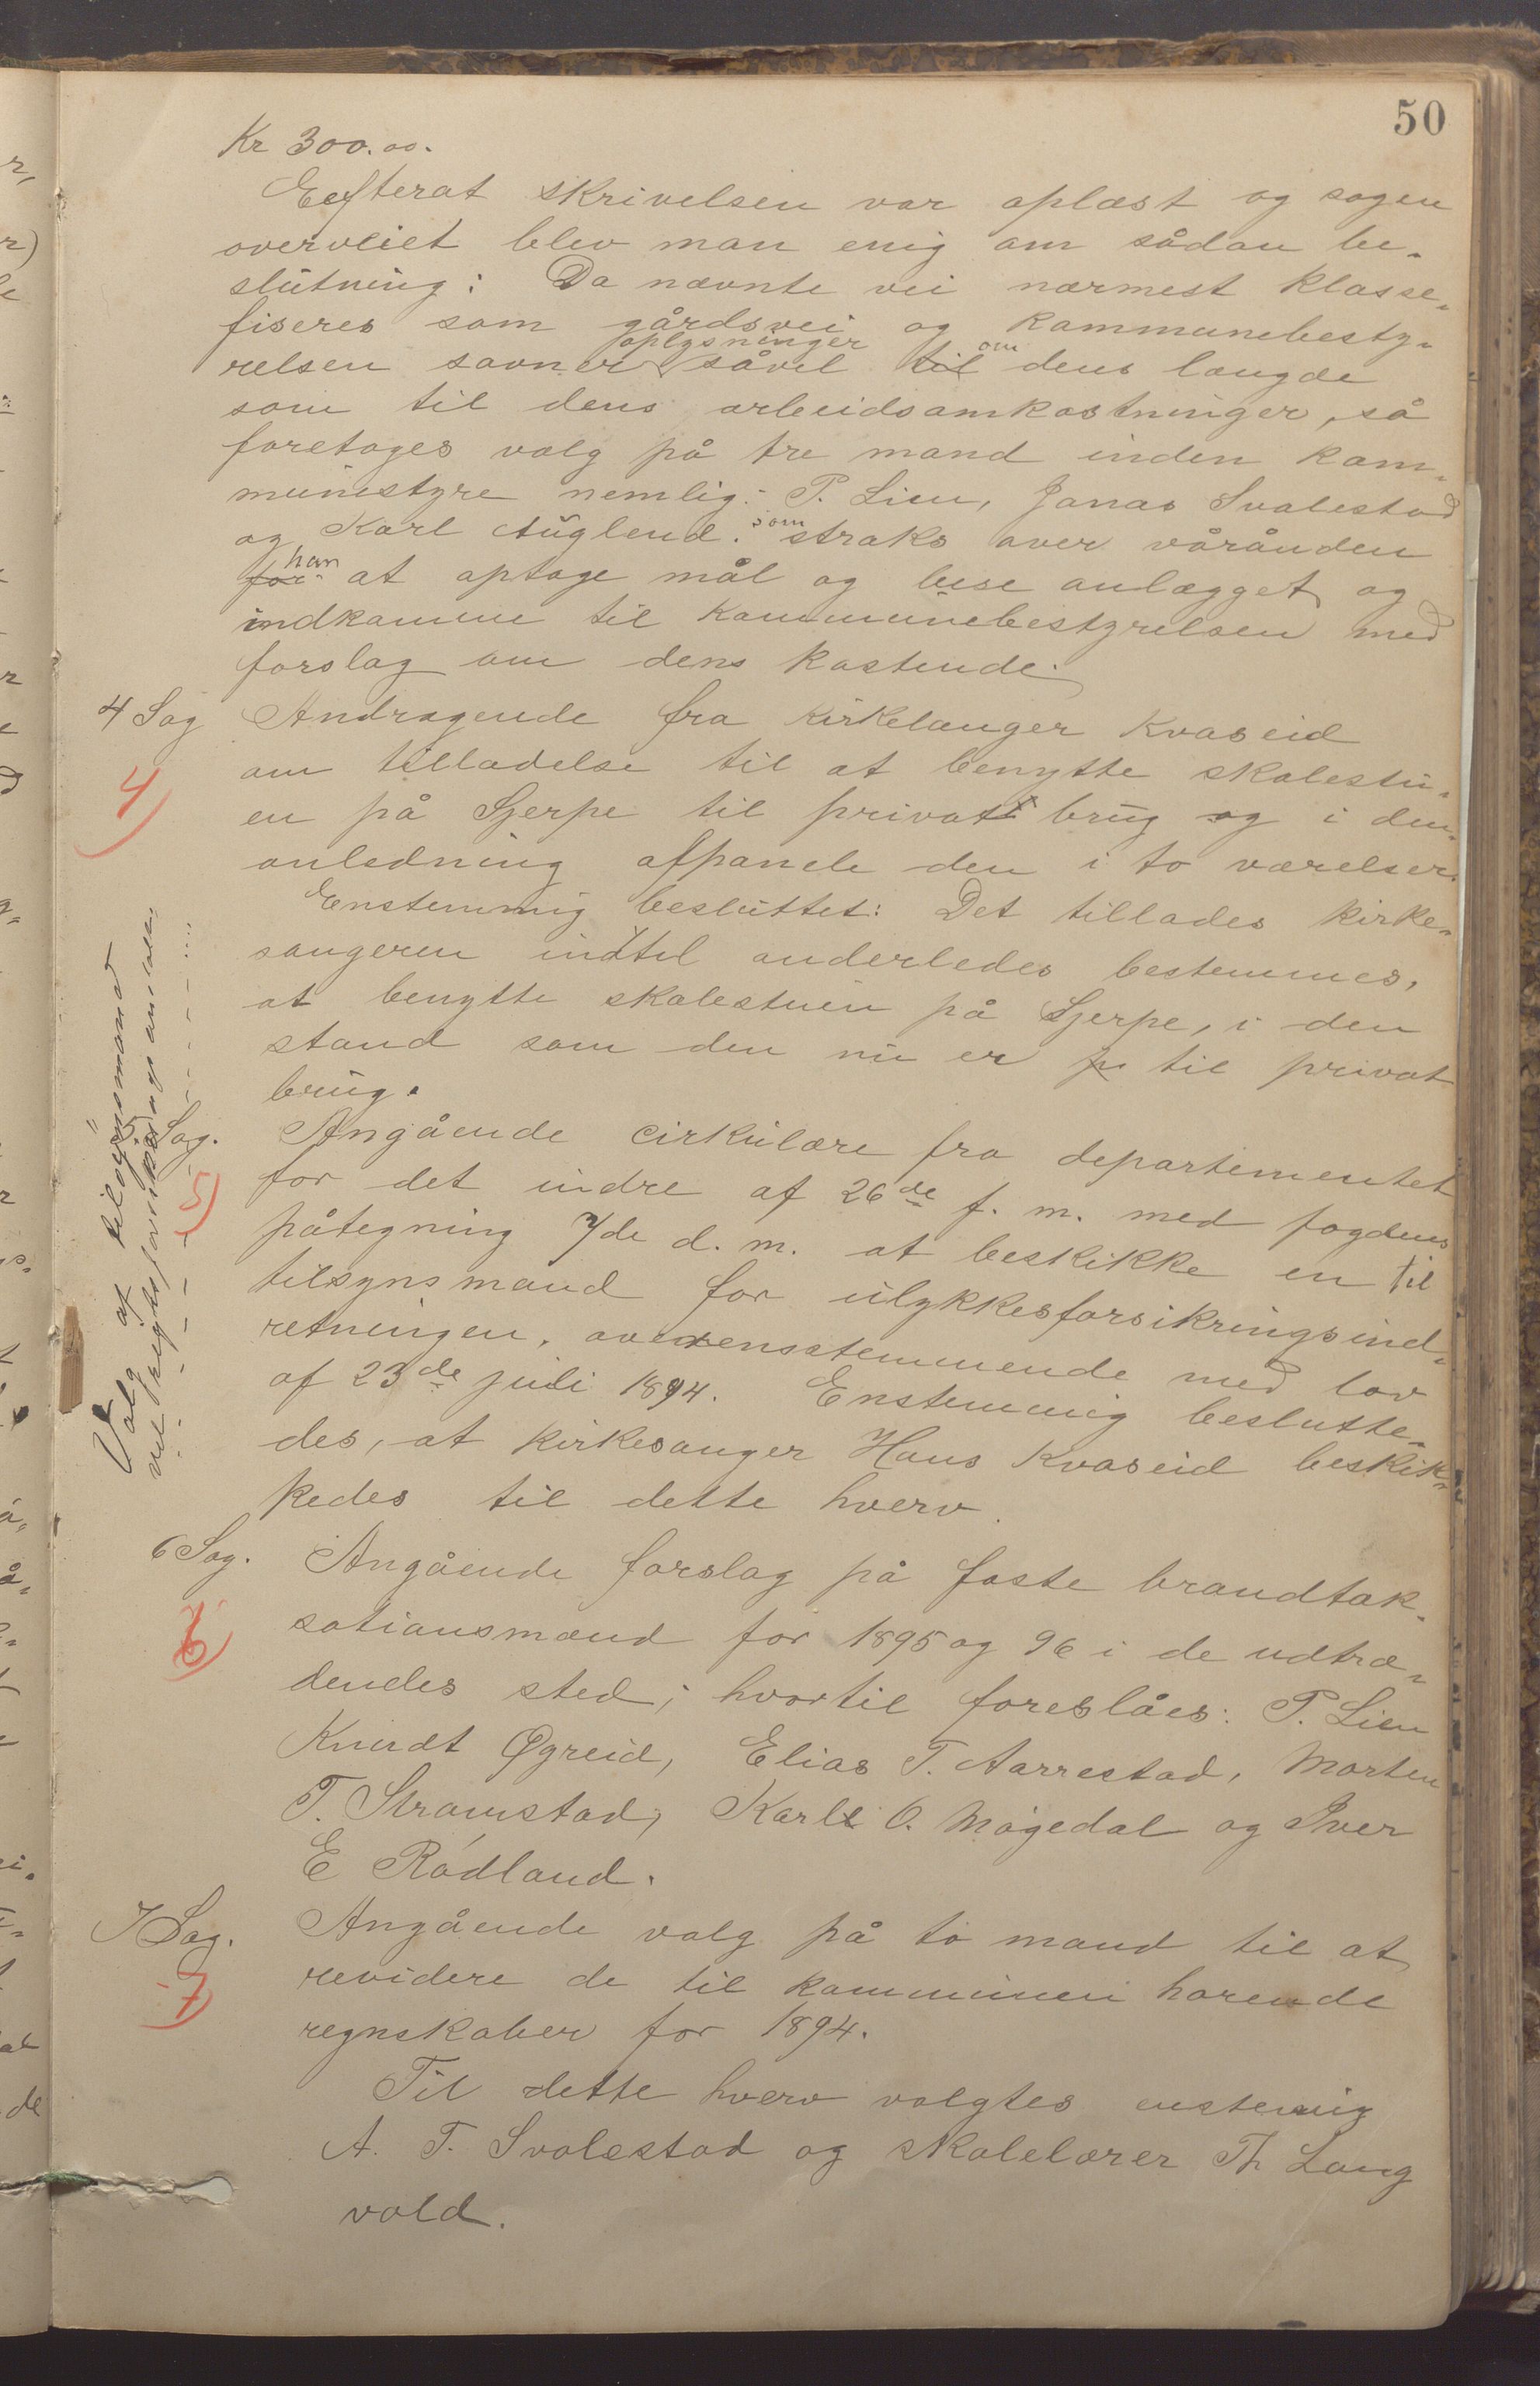 50
Kr 300.00.
Eefterat skrivelsen var oplæst og sagen
overveiet blev man enig om sådan be-
slutning: Da nævnte vei nærmest klasse-
fiseres som gårdsvei og kommunebesty-
oplysninger om
relsen savner såvel til dens længde
som til dens arbeidsomkostninger, så
foretages valg på tre mand inden kom-
munestyre nemlig: P. Lien, Jonas Svalestad
og Karl Auglend. som straks over vårånden
han
for at optage mål og bese anlægget og
indkomme til kommunebestyrelsen med
forslag om dens kostende.
4 Sag Andragende fra Kirkelanger Kvaseid
4) om tilladelse til at benytte skolestu-
en på Sjerpe til privat brug og i den
anledning afpanele den i to værelser.
Enstemmig besluttet: Det tillades kirke-
sangeren indtil anderledes bestemmes,
at benytte skolestuen på Sjerpe, i den
stand som den nu er til privat
brug.
Valg af tilsynsmand
ved
5 Sag. Angående cirkulære fra departementet
5) for det indre af 26de f. m. med fogdens
påtegning 7de d. m. at beskikke en til
tilsynsmand for ulykkesforsikringsind-
retningen, overensstemmende med lov
af 23de juli 1894. Enstemmig beslutte-
des, at kirkesanger Hans Kvaseid beskik-
kedes til dette hverv.
6 Sag. Angående forslag på faste brandtak-
6) sationsmænd for 1895 og 96 i de udtræ-
dendes sted; hvortil foreslåes: P. Lien
Knudt Øgreid, Elias T. Aarrestad, Morten
T. Stramstad, Karl O. Mogedal og Iver
E Rodland.
7 Sag. Angående valg på to mand til at
7) revidere de til kommunen horende
regnskaber for 1894.
Til dette hverv valgtes enstemig
A. T. Svalestad og skolelærer Th Lang
vald.